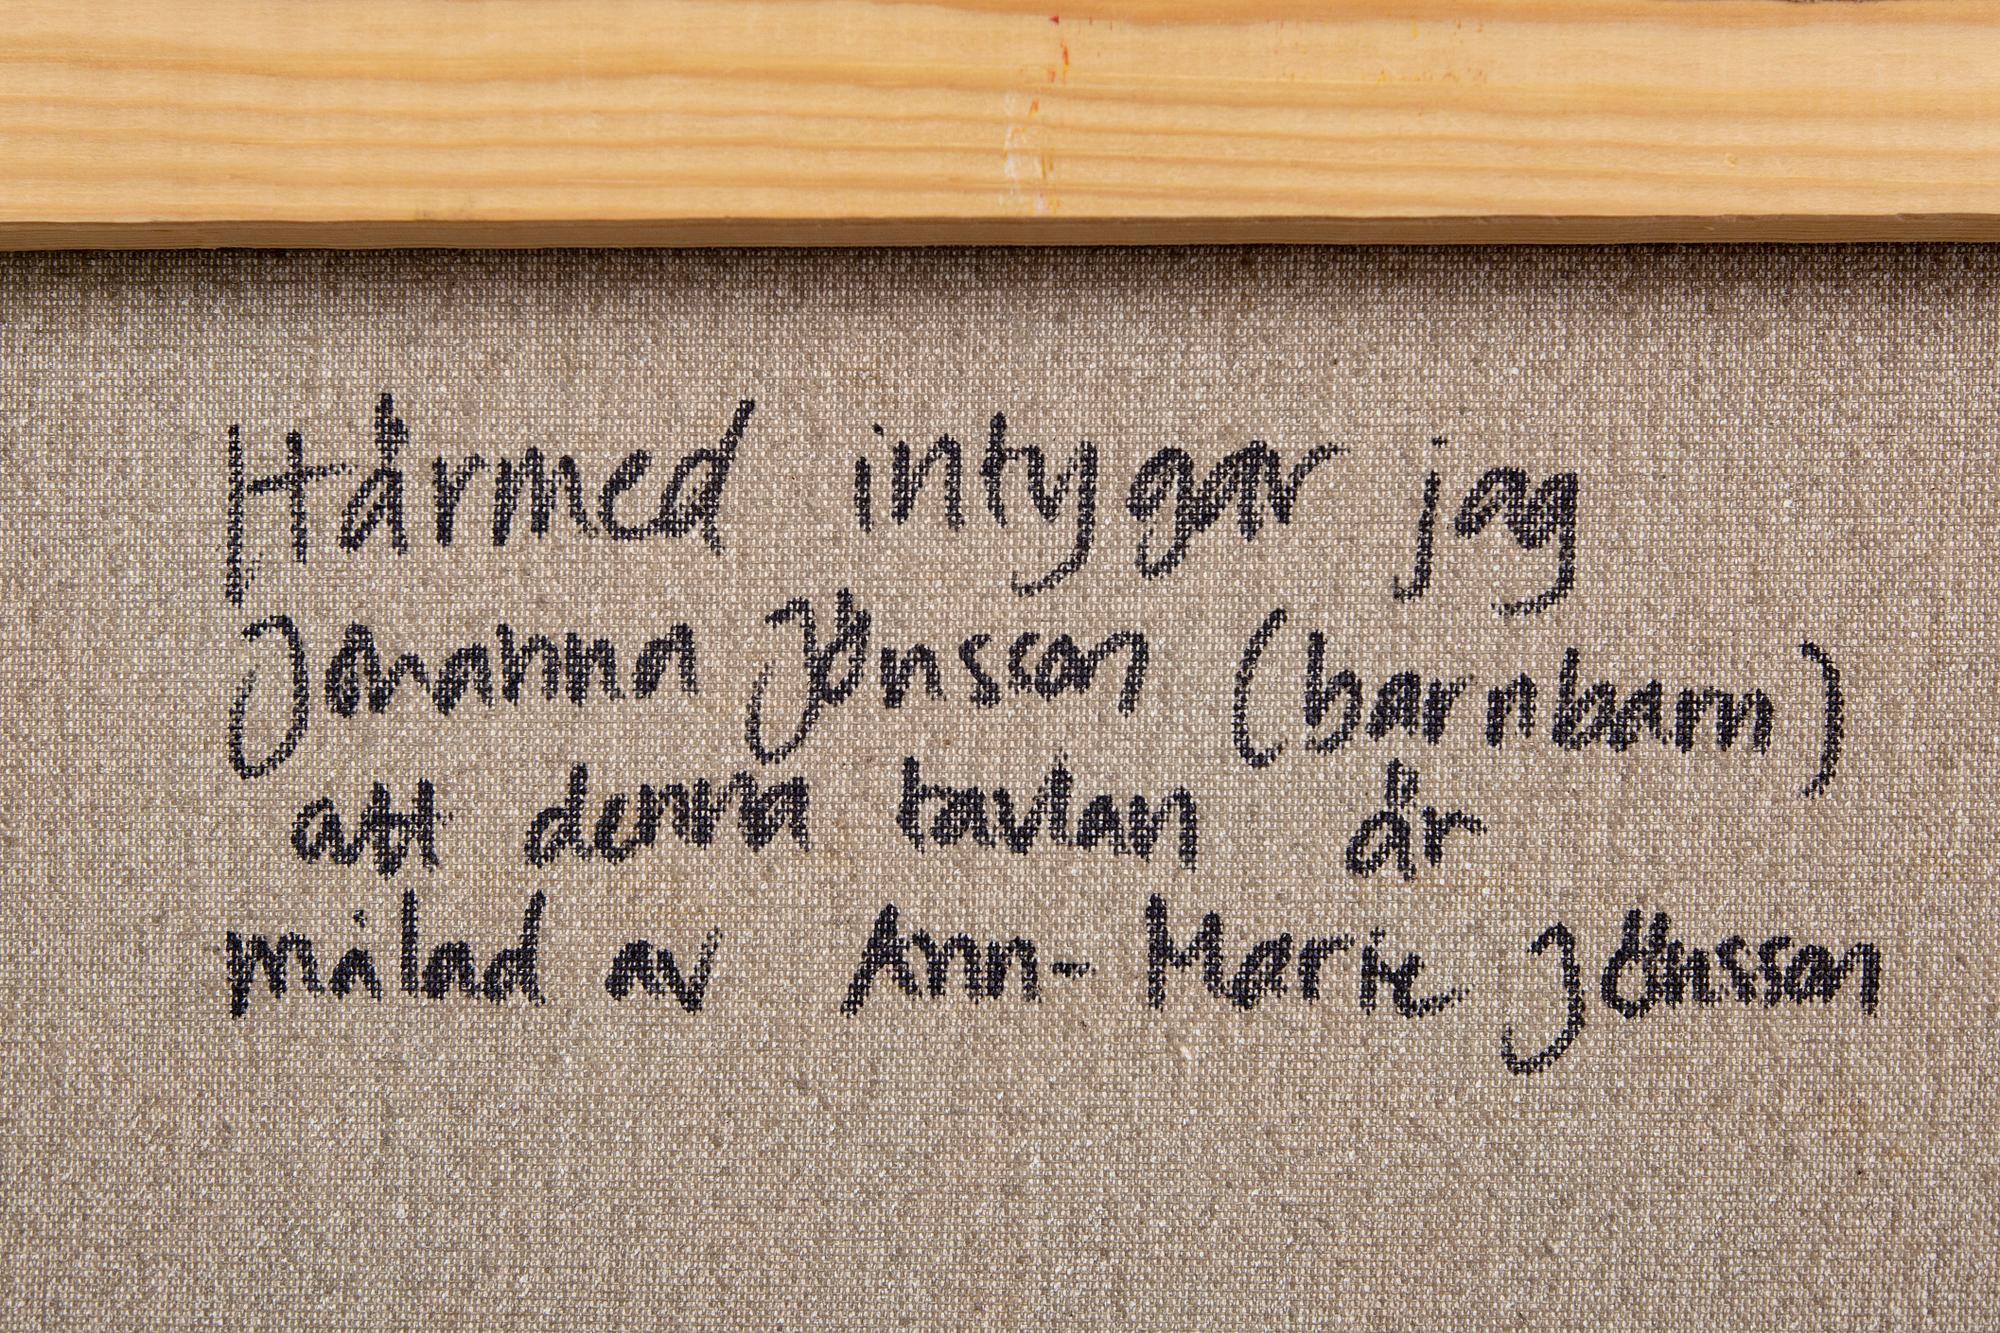 Härmed intygar jag
Johanna Jönsson (barnbarn)
att denna tavlan är
målad av Ann-Marie Jönsson